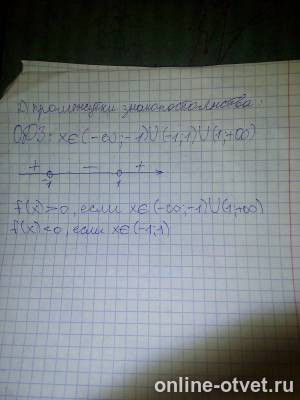 2) промежутки знакопостоянства:
ОДЗ: x∈(-∞;-1)∪(-1;1)∪(1;+∞)
+ - +
-1 1
f(x)>0, если x∈(-∞;-1)∪(1;+∞)
f(x)<0, если x∈(-1;1)
online-otvet.ru